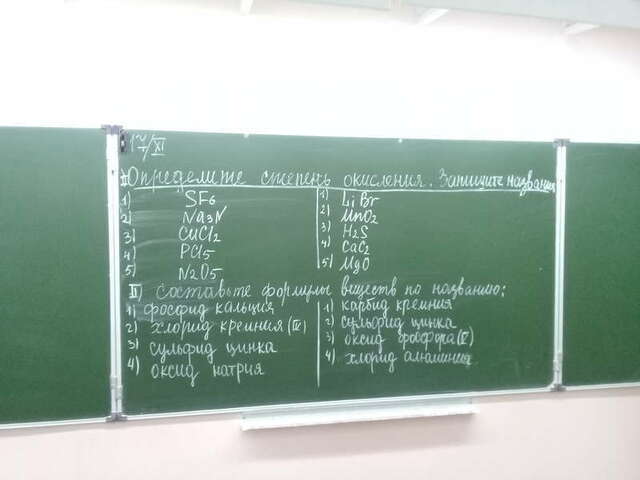 I Определите степень окисления. Запишите названия
1) SF6
2) Na3N
3) CuCl2
4) PCl5
5) N2O5
1) LiBr
2) MnO2
3) H2S
4) CaC2
5) MgO
II) Составьте формулы веществ по названию:
1) фосфид кальция
2) хлорид кремния (IV)
3) сульфид цинка
4) оксид натрия
1) карбид кремния
2) сульфид цинка
3) оксид фосфора (V)
4) хлорид алюминия